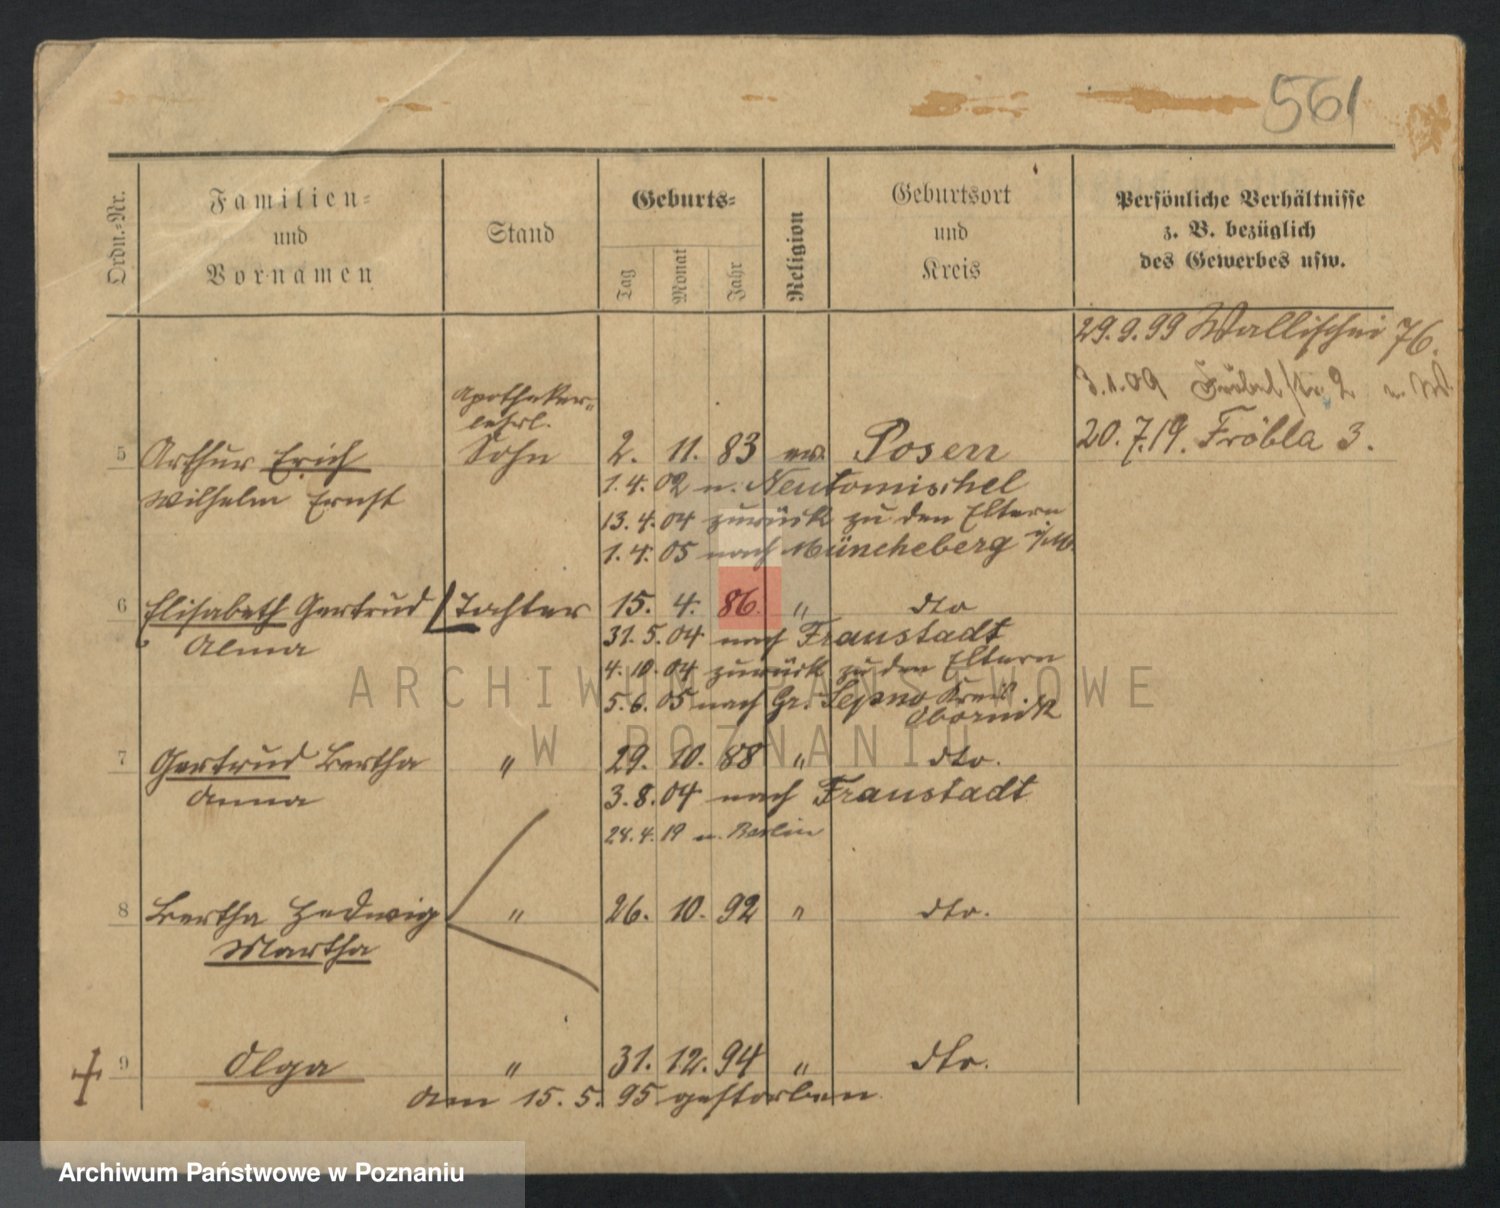 561
Ordn.-Nr.
Familien-
und
Vornamen
Stand
Geburts-
Tag
Monat
Jahr
Religion
Geburtsort
und
Kreis
Persönliche Verhältnisse
z. B. bezüglich
des Gewerbes usw.
29.9.99 Wallischei 76.
3.1.09
20.7.19. Fröbla 3.
Apotheker-
lehrl.
5 Arthur Erich Sohn 2. 11. 83 ev. Posen
Wilhelm Ernst 1.4.02 n. Neutomischel
13.4.04 zurück zu den Eltern
1.4.05 nach Müncheberg i/M.
6 Elisabeth Gertrud Tochter 15. 4. 86. " dto
Alma 31.5.04 nach Fraustadt
4.10.04 zurück zu den Eltern
5.6.05 nach Gr. Lepno Kreis
Obornik
7 Gertrud Bertha " 29. 10. 88 " dto.
Anna 3.8.04 nach Fraustadt
24.4.19 n. Berlin
8 Bertha Hedwig " 26. 10. 92 " dto.
Martha
9 Olga " 31. 12. 94 " dto.
am 15.5.95 gestorben
ARCHIWUM PAŃSTWOWE
W POZNANIU
Archiwum Państwowe w Poznaniu